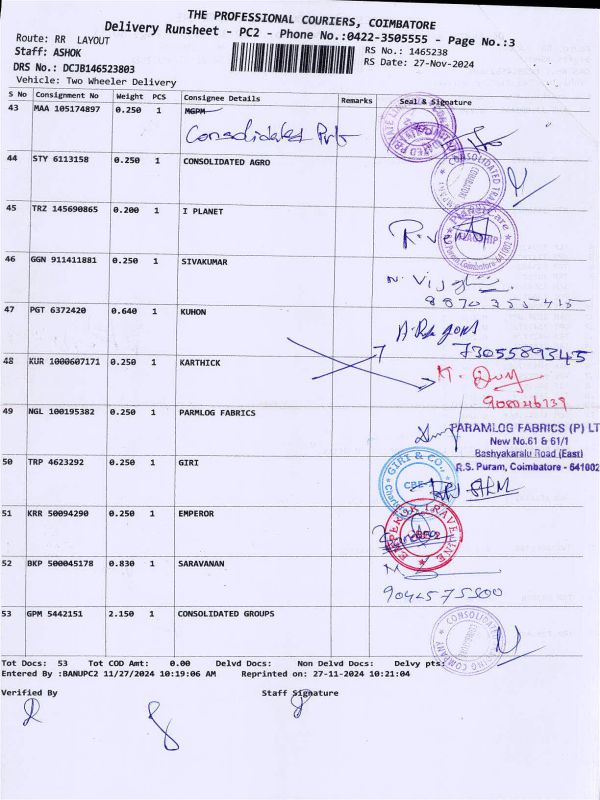 THE PROFESSIONAL COURIERS, COIMBATORE
Delivery Runsheet - PC2 - Phone No.:0422-3505555 - Page No.:3
Route: RR LAYOUT
RS No.: 1465238
Staff: ASHOK
RS Date: 27-Nov-2024
DRS No.: DCJB146523803
Vehicle: Two Wheeler Delivery
S No Consignment No Weight PCS Consignee Details Remarks Seal & Signature
43 MAA 105174897 0.250 1 MGPM
Consolidated Pvt
44 STY 6113158 0.250 1 CONSOLIDATED AGRO
45 TRZ 145690865 0.200 1 I PLANET
46 GGN 911411881 0.250 1 SIVAKUMAR
8870 355 415
47 PGT 6372420 0.640 1 KUHON
7305589345
48 KUR 1000607171 0.250 1 KARTHICK
49 NGL 100195382 0.250 1 PARMLOG FABRICS
PARAMLOG FABRICS (P) LT
New No.61 & 61/1
Bashyakaralu Road (East)
R.S. Puram, Coimbatore - 641002
50 TRP 4623292 0.250 1 GIRI
GIRI & CO.,
CBE-2
51 KRR 50094290 0.250 1 EMPEROR
EMPEROR TRAVELINE
52 BKP 500045178 0.830 1 SARAVANAN
9042575500
53 GPM 5442151 2.150 1 CONSOLIDATED GROUPS
Tot Docs: 53 Tot COD Amt: 0.00 Delvd Docs: Non Delvd Docs: Delvy pts:
Entered By :BANUPC2 11/27/2024 10:19:06 AM Reprinted on: 27-11-2024 10:21:04
Verified By Staff Signature